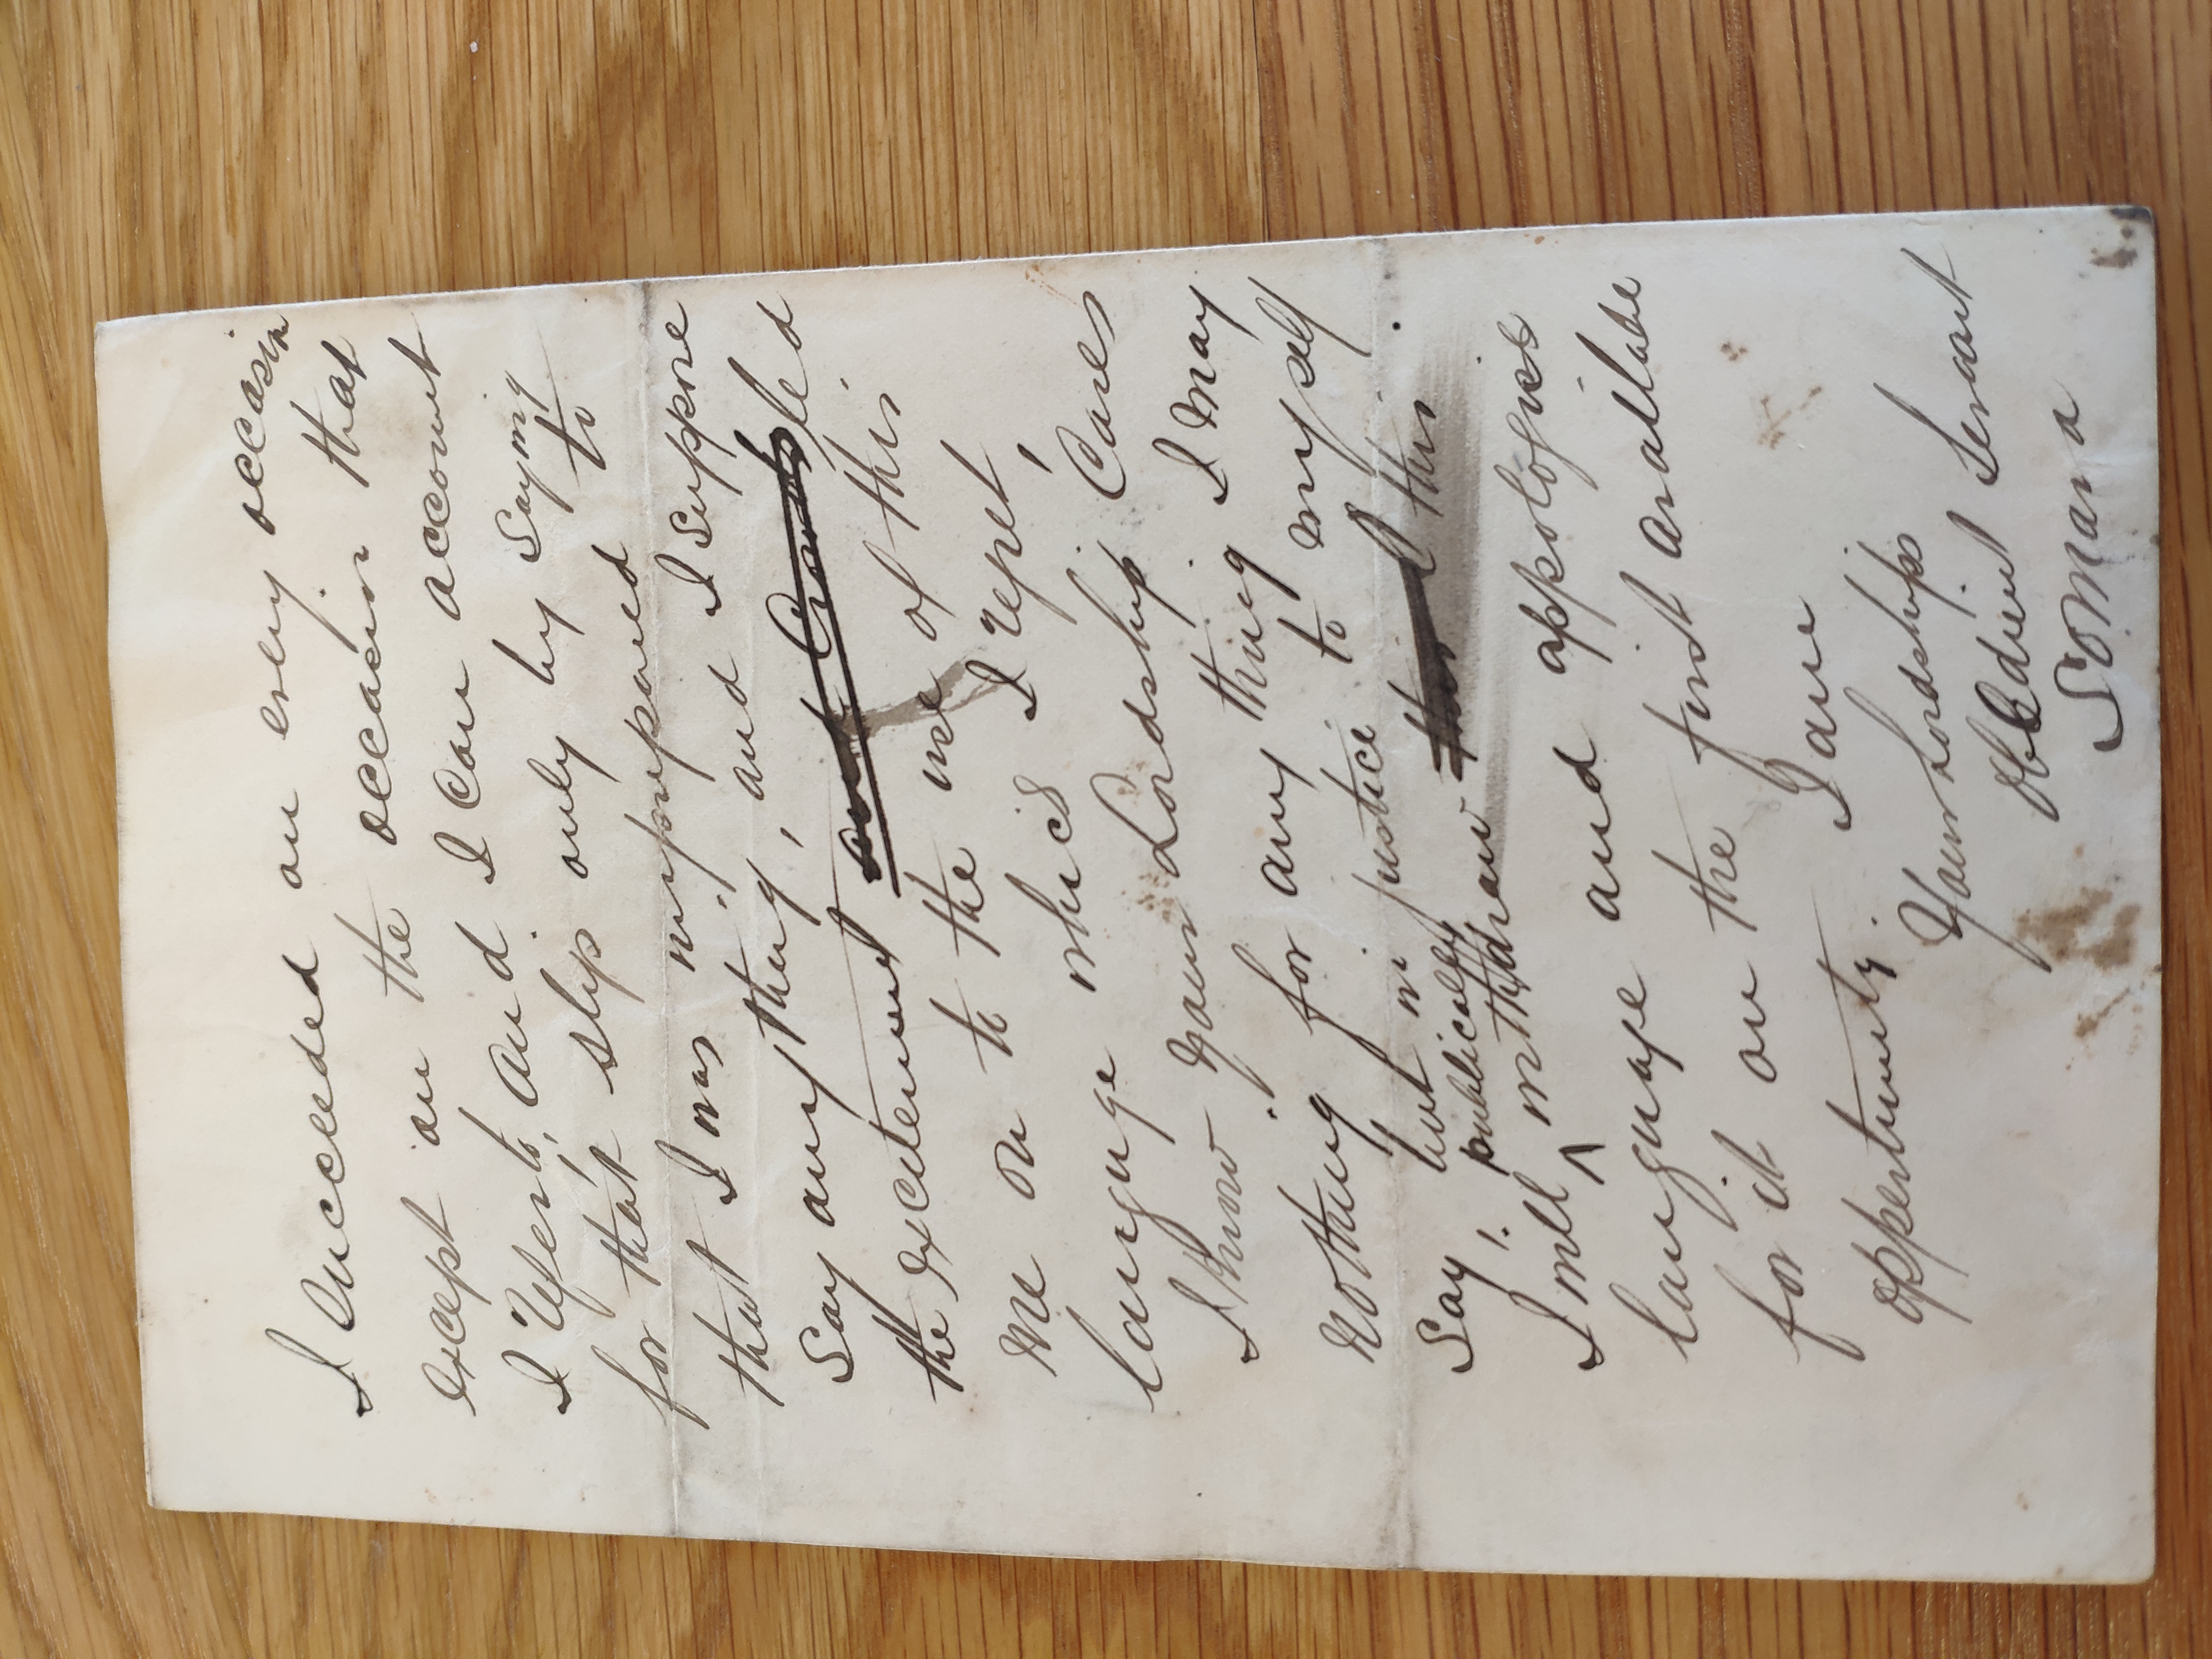 I succeeded on every occasion
except on the occasion that
I refer to, and I can account
for that slip only by saying
that I was unprepared to
say any thing, and I suppose
the excitement led
me on to the use of this
languge which I regret,
I know your Lordship cares
nothing for any thing I may
say, but in justice to myself
I will publically withdraw this
language and appologise
for it on the first available
oppertunity. I am
Your Lordships
Obedient Servant